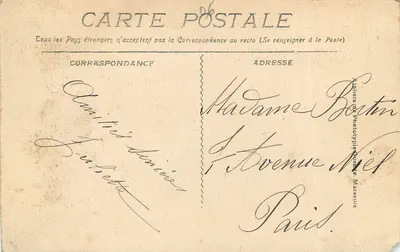 CARTE POSTALE
Tous les Pays étrangers n'acceptent pas la Correspondance au recto (Se renseigner à la Poste)
CORRESPONDANCE
ADRESSE
Amitiés sincères
Juliette
Madame Bostin
1, Avenue Niel
Paris.